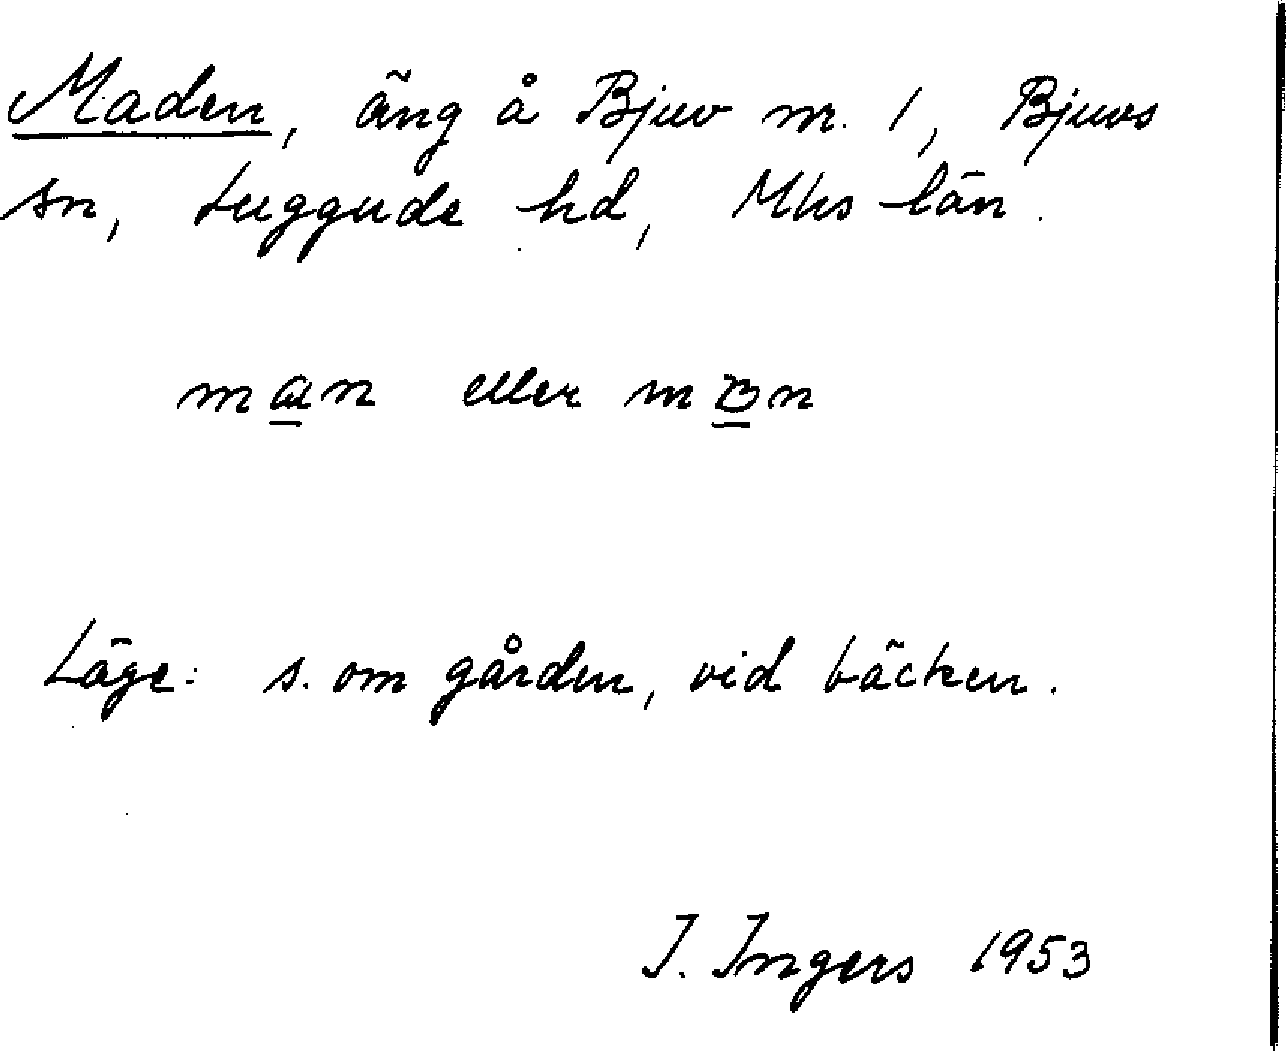 Maden, äng å Bjuv nr. 1, Bjuvs
sn, Luggude hd, Mhs län.
man eller
Läge: s. om gården, vid bäcken.
I. Ingers 1953